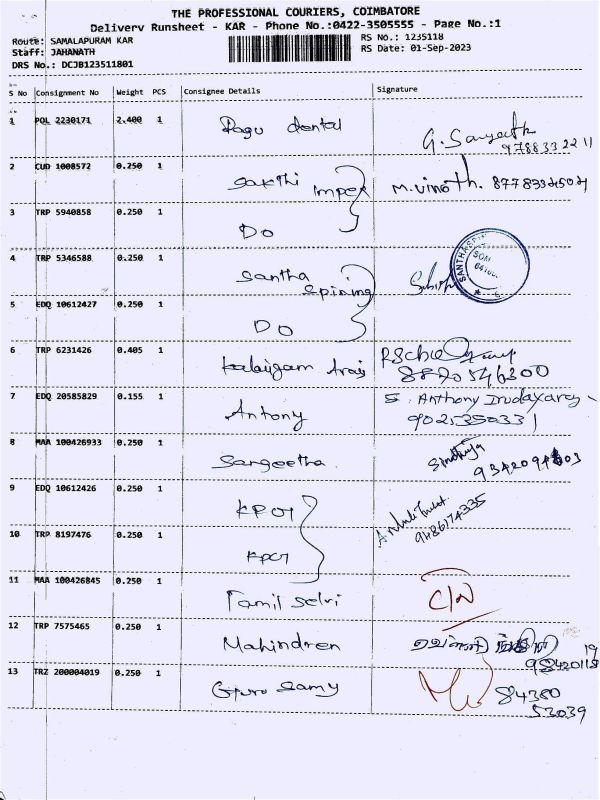 THE PROFESSIONAL COURIERS, COIMBATORE
Delivery Runsheet - KAR - Phone No.:0422-3505555 - Page No.:1
Route: SAMALAPURAM KAR RS No.: 1235118
Staff: JAHANATH RS Date: 01-Sep-2023
DRS No.: DCJB123511801
S No Consignment No Weight PCS Consignee Details Signature
1 POL 2230171 2.400 1 Ragu dental G. Sangeeth
97883322 11
2 CUD 1008572 0.250 1 Sakthi Impex M. Vinoth.
3 TRP 5940858 0.250 1 DO
4 TRP 5346588 0.250 1 Santha Spining
5 EDQ 10612427 0.250 1 DO
6 TRP 6231426 0.405 1
8870546300
7 EDQ 20585829 0.155 1 Antony S. Anthony
9025350331
8 MAA 100426933 0.250 1 Sangeetha
9 EDQ 10612426 0.250 1
9486174335
10 TRP 8197476 0.250 1
11 MAA 100426845 0.250 1 Tamil Selvi
12 TRP 7575465 0.250 1 Mahindren
13 TRZ 200004019 0.250 1 Guru Samy 84380
53039